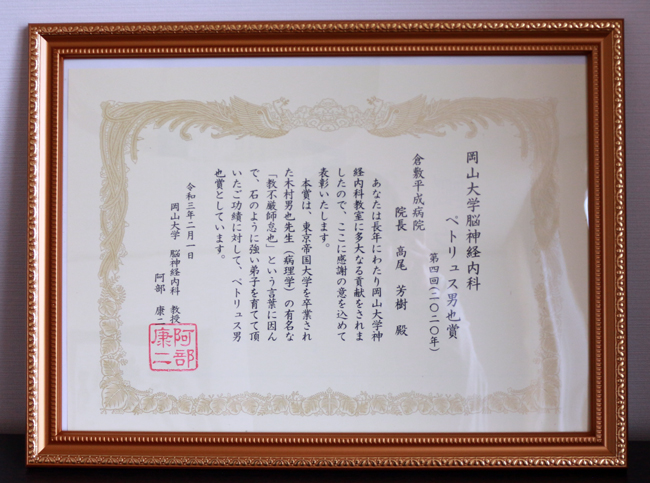 岡山大学脳神経内科
ペトリュス男也賞
第四回(二〇二〇年)
倉敷平成病院
院長 高尾 芳樹 殿
あなたは長年にわたり岡山大学神
経内科教室に多大なる貢献をされま
したので、ここに感謝の意を込めて
表彰いたします。
本賞は、東京帝国大学を卒業され
た木村男也先生(病理学)の有名な
「教不厳師怠也」という言葉に因ん
で、石のように強い弟子を育てて頂
いたご功績に対して、ペトリュス男
也賞としています。
令和三年二月一日
岡山大学 脳神経内科 教授
阿部 康二
阿部
康二